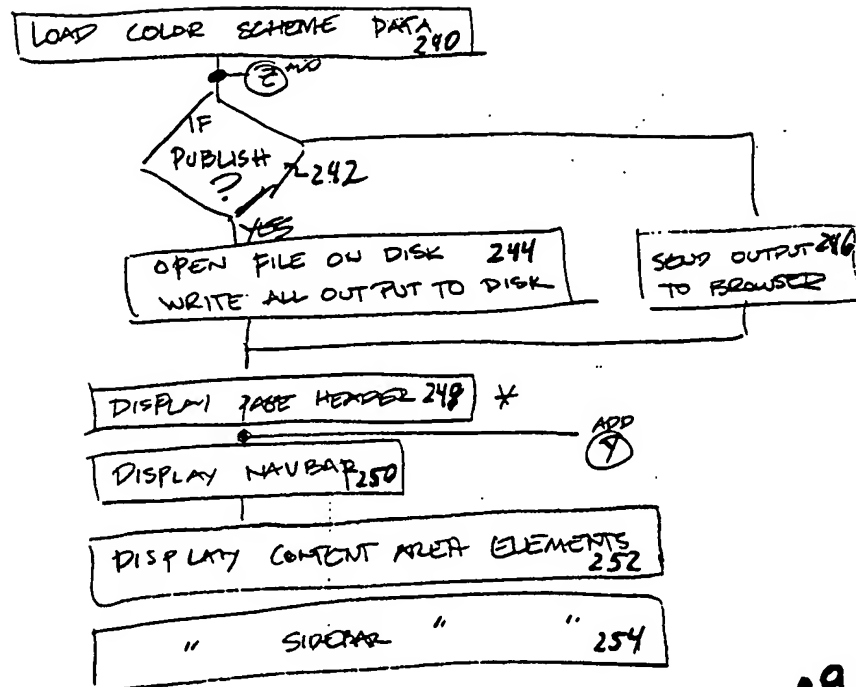 LOAD COLOR SCHEME DATA
240
Z
IF
PUBLISH
?
242
YES
OPEN FILE ON DISK 244
WRITE ALL OUTPUT TO DISK
SEND OUTPUT 246
TO BROWSER
DISPLAY PAGE HEADER 248 *
ADD
Y
DISPLAY NAVBAR 250
DISPLAY CONTENT AREA ELEMENTS
252
" SIDEBAR " " 254